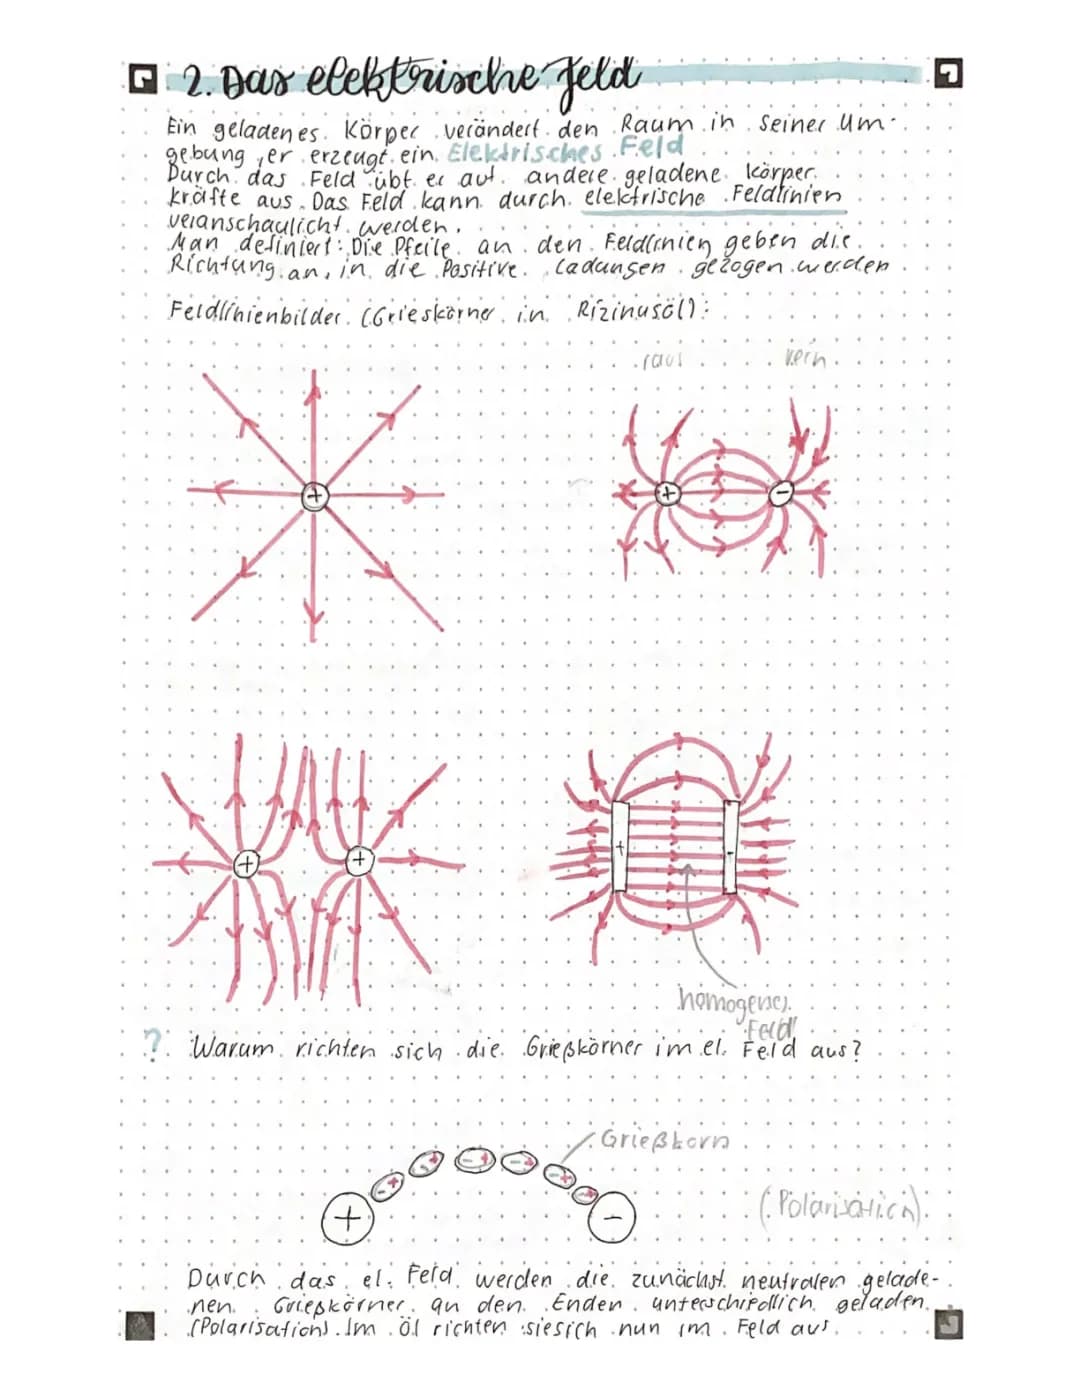 2. Das elektrische Feld
Ein geladenes Körper verändert den Raum in seiner Um-
gebung, er erzeugt ein Elektrisches Feld
Durch das Feld übt er auf andere geladene körper
kräfte aus. Das Feld kann durch elektrische Feldlinien
veranschaulicht werden.
Man definiert: Die Pfeile an den Feldlinien geben die
Richtung an, in die Positive Ladungen gezogen werden
Feldlinienbilder (Grieskörner in Rizinusöl):
raus rein
+
+ -
+ +
+ -
homogenes
Feld!
? Warum richten sich die Grießkörner im el. Feld aus?
Grießkorn
- + - + - + - + - + - +
+ -
(Polarisation)
Durch das el. Feld werden die zunächst neutralen gelade-
nen Grießkörner an den Enden unterschiedlich geladen
(Polarisation). Im Öl richten sie sich nun im Feld aus.